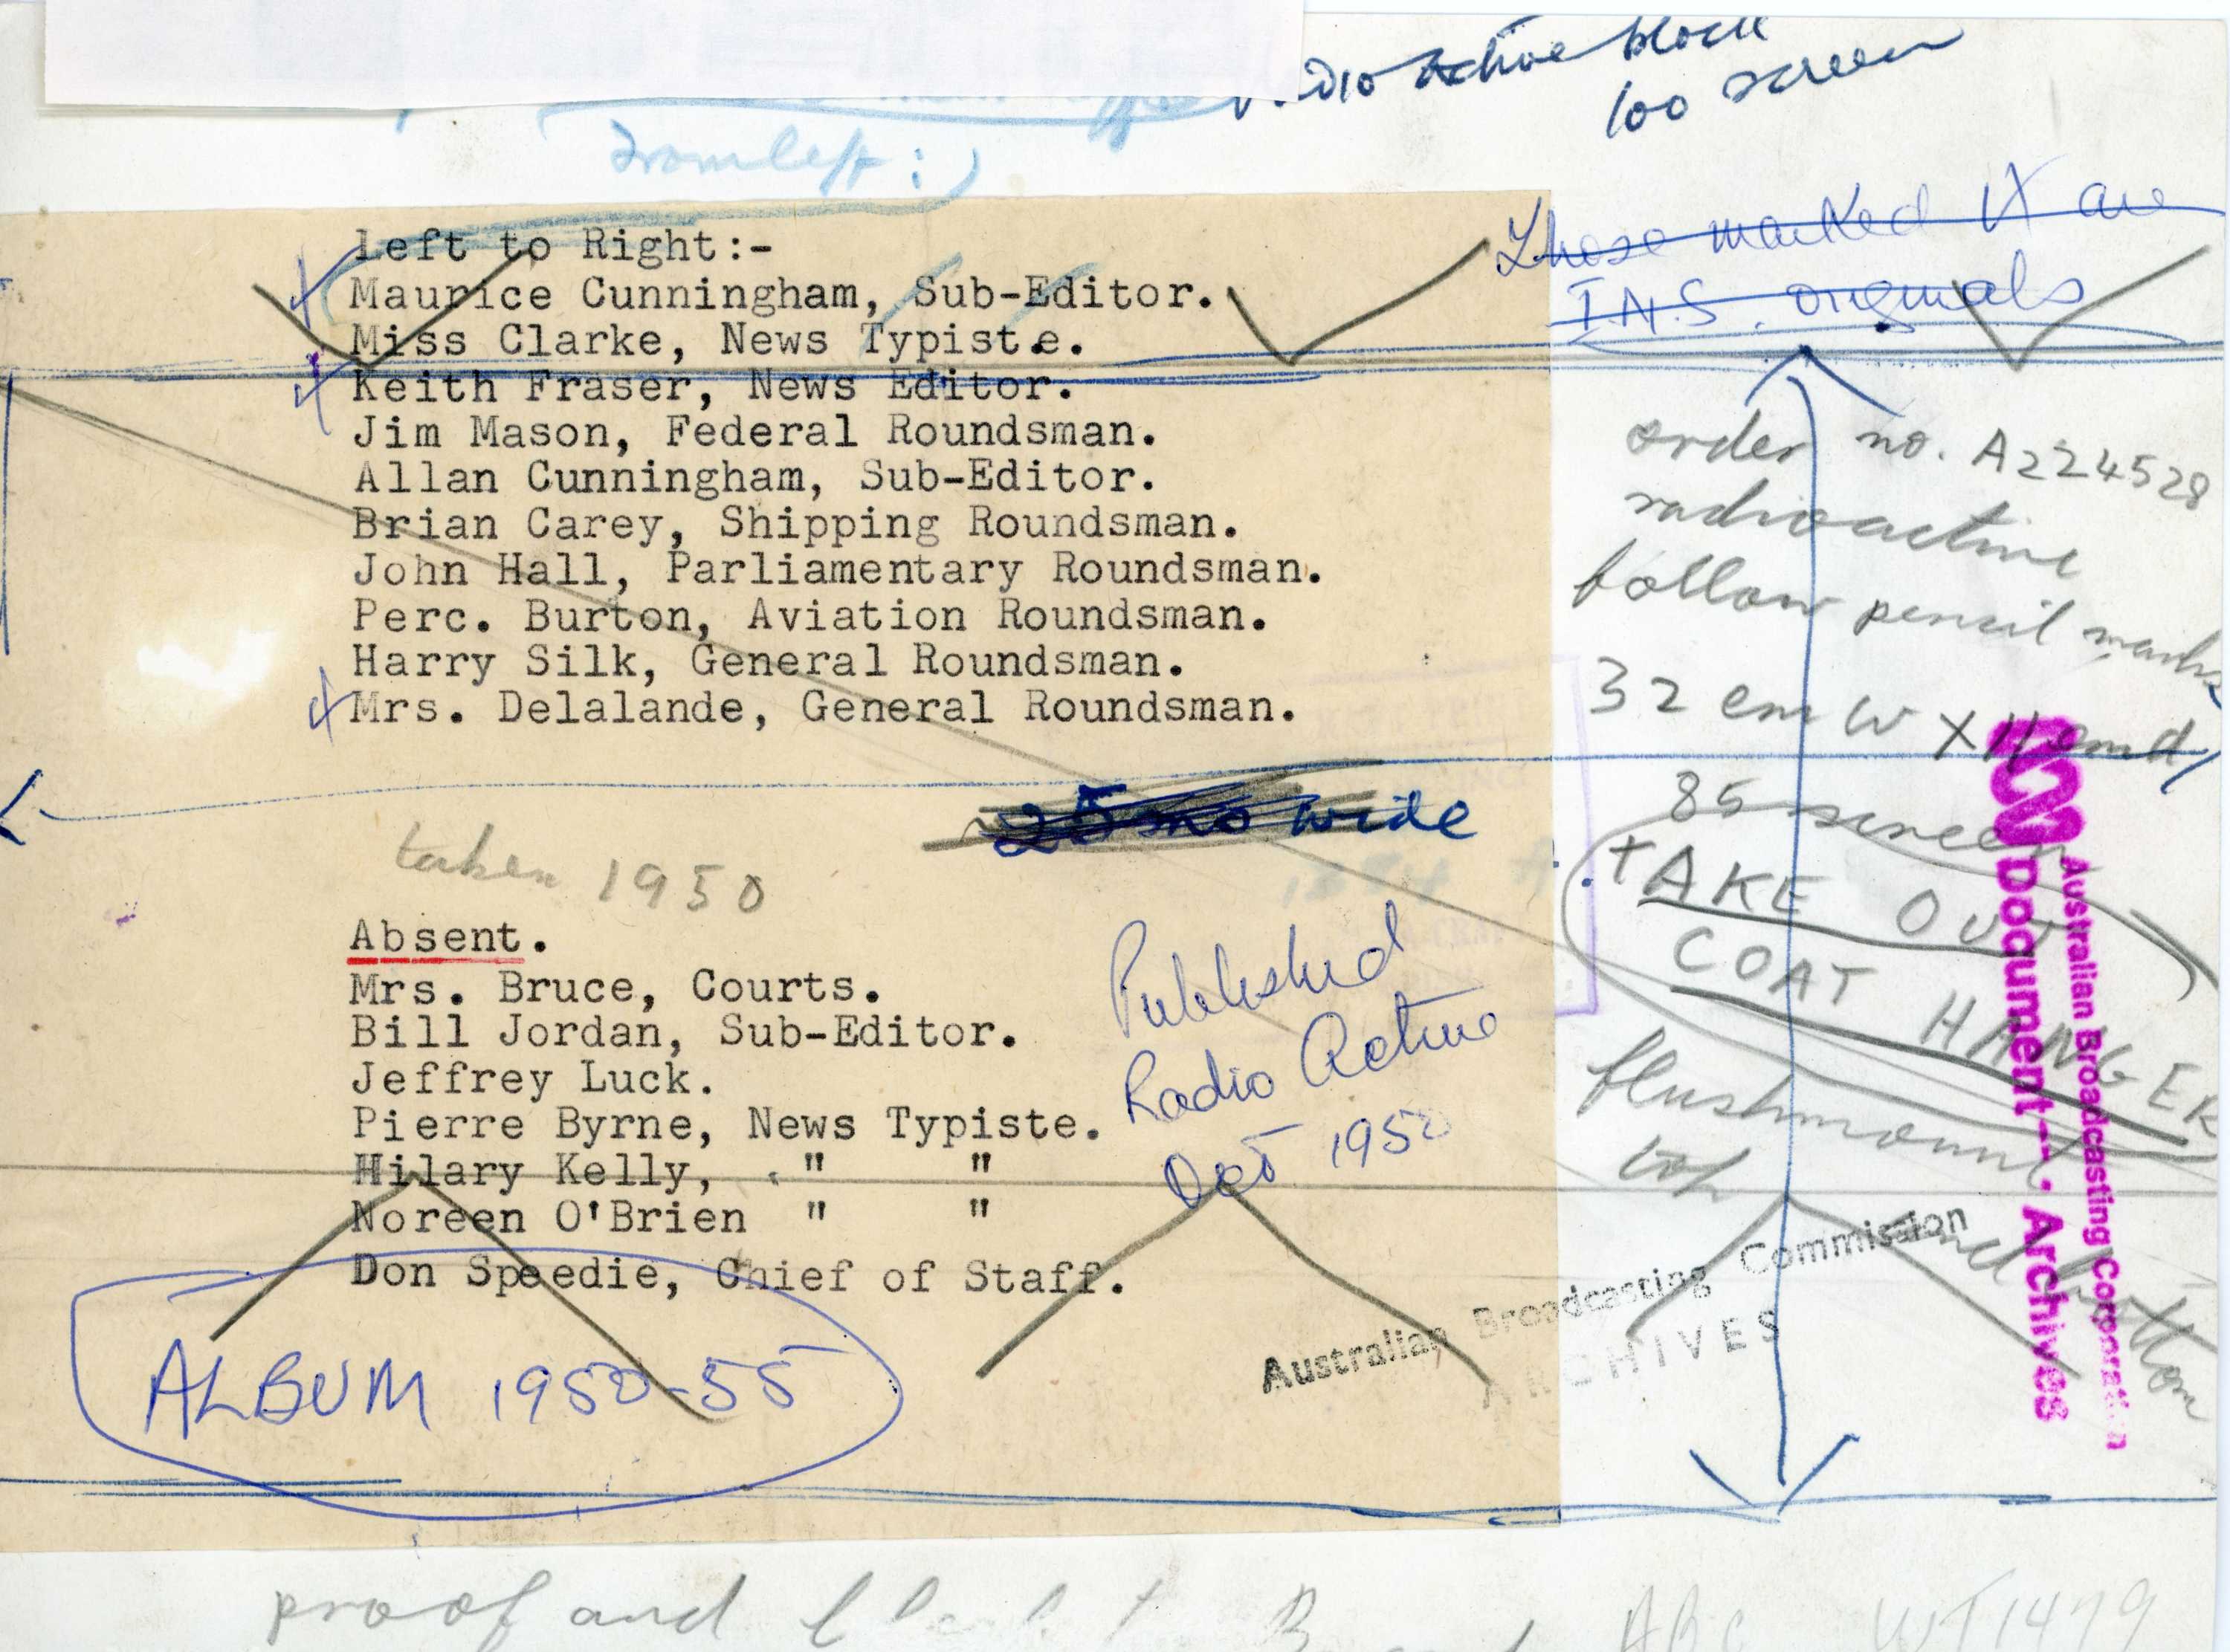 Radio Active block
100 screen
From left:)
Those marked X are
I.N.S. originals
Left to Right:-
Maurice Cunningham, Sub-Editor.
Miss Clarke, News Typiste.
Keith Fraser, News Editor.
Jim Mason, Federal Roundsman.
Allan Cunningham, Sub-Editor.
Brian Carey, Shipping Roundsman.
John Hall, Parliamentary Roundsman.
Perc. Burton, Aviation Roundsman.
Harry Silk, General Roundsman.
Mrs. Delalande, General Roundsman.
25 wide
taken 1950
Absent.
Mrs. Bruce, Courts.
Bill Jordan, Sub-Editor.
Jeffrey Luck.
Pierre Byrne, News Typiste.
Hilary Kelly, " "
Noreen O'Brien " "
Don Speedie, Chief of Staff.
Published
Radio Active
Oct 1950
ALBUM 1950-55
order no. A224528
radioactive
follow pencil marks
32 em W X 11 em d
85 screen
TAKE OUT
COAT HANGER
flushmount
top
and bottom
Australian Broadcasting Commission
ARCHIVES
Australian Broadcasting Corporation
Document Archives
proof and block to ABC WT1479